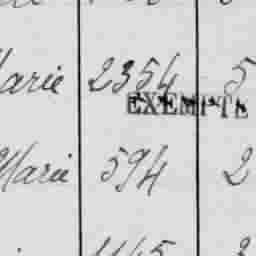 Marie 2354 5
EXEMPTE
Marie 594 2